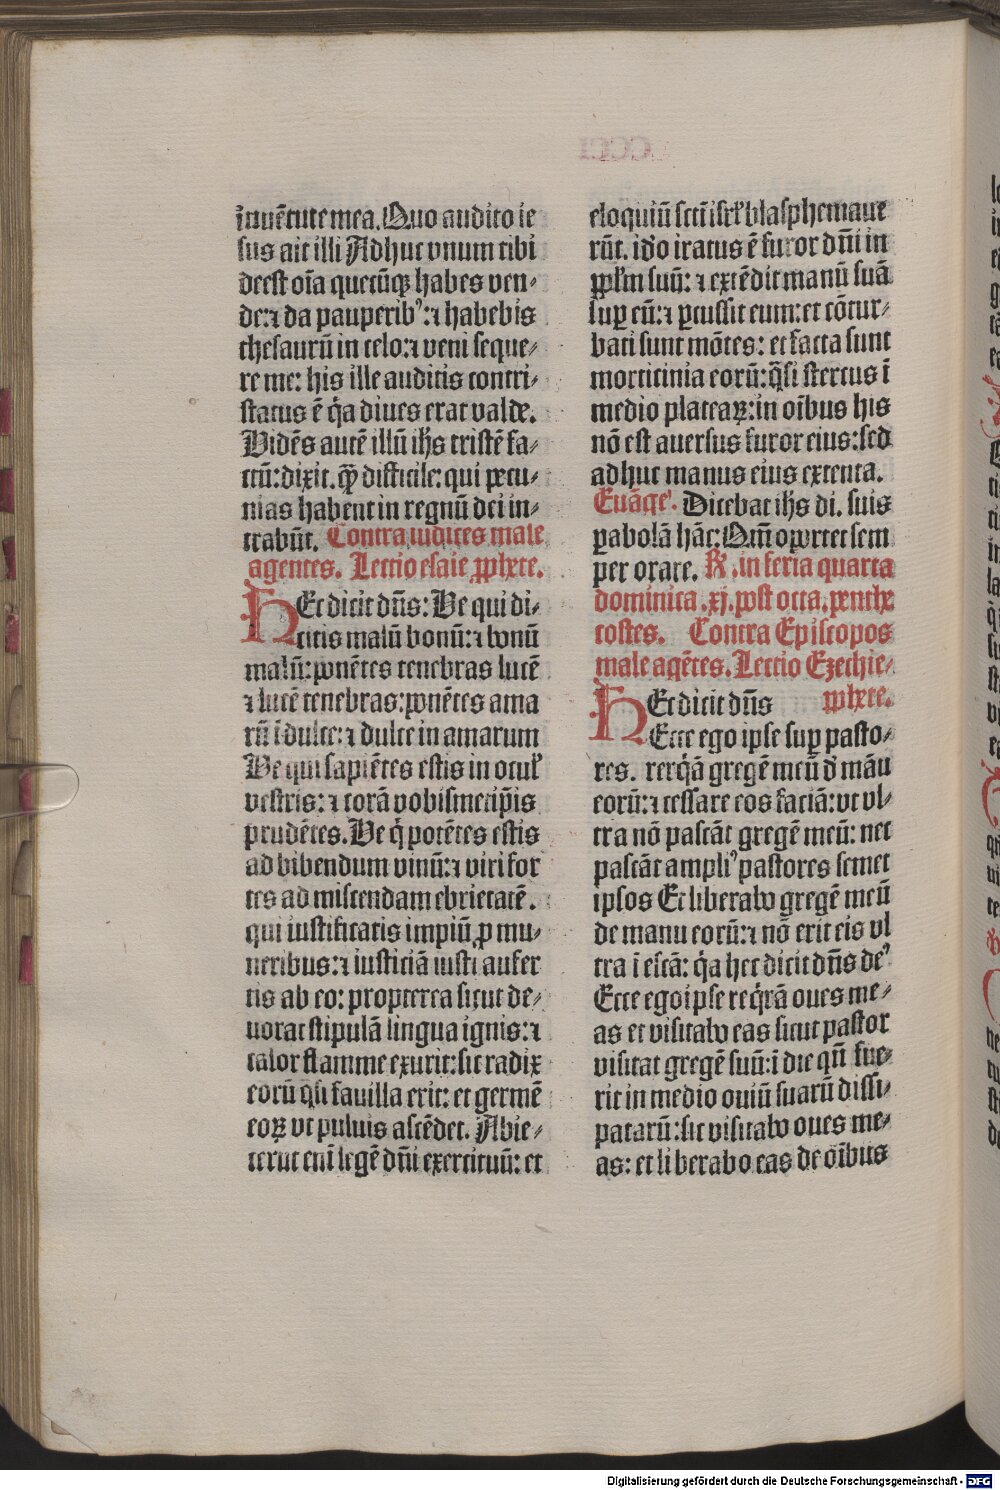 īnuētute mea. Quo audito ie
sus ait illi Adhuc vnum tibi
deest oīa quecūqꝫ habes ven⸗
de: ⁊ da pauperibꝰ: ⁊ habebis
thesaurū in celo: ⁊ veni seque⸗
re me: his ille auditis contri⸗
status ē q̇a diues erat valde.
Vidēs autē illū ih̄s tristē fa⸗
ctū: dixit. qꝫ̄ difficile: qui pecu⸗
nias habent in regnū dei in⸗
trabūt. Contra iudices male
agentes. Lectio esaie ꝓphete.
Hec dicit dn̄s: Ve qui di⸗
citis malū bonū: ⁊ bonū
malū: ponētes tenebras lucē
⁊ lucē tenebras: ponētes ama
rū ī dulce: ⁊ dulce in amarum
Ve qui sapiētes estis in ocul̓
vestris: ⁊ corā vobismetip̄is
prudētes. Ve q̇ potētes estis
ad bibendum vinū: ⁊ viri for
tes ad miscendam ebrietatē.
qui iustificatis impiū ꝓ mu⸗
neribus: ⁊ iusticiā iusti aufer
tis ab eo: propterea sicut de⸗
uorat stipulā lingua ignis: ⁊
calor flamme exurit: sic radix
eorū q̄si fauilla erit: et germē
eoꝝ vt puluis ascēdet. Abie⸗
cerut eni̅ legē dn̄i exercituū: et
eloquiū sctī isrl̓ blasphemaue
rūt. id̓o iratus ē furor dn̄i in
ppl̓m suū: ⁊ extēdit manū suā
suꝑ eū: ⁊ ꝑcussit eum: et cōtur⸗
bati sunt mōtes: et facta sunt
morticinia eorū: q̄si stercus ī
medio plateaꝝ: in oībus his
nō est auersus furor eius: sed
adhuc manus eius extenta.
Euāge̓. Dicebat ih̄s di. suis
ꝑabolā hāc: Qm̄ oportet sem
per orare. R̓. in feria quarta
dominica .xj. post octa. penthe
costes. Contra Episcopos
male agētes. Lectio Ezechie⸗
ꝓphete.
Hec dicit dn̄s
Ecce ego ipse suꝑ pasto⸗
res. req̇rā gregē meū d̓ māu
eorū: ⁊ cessare eos faciā: vt vl⸗
tra nō pascāt gregē meū: nec
pascāt ampliꝰ pastores semet
ipsos Et liberabo gregē meū
de manu eorū: ⁊ nō erit eis vl
tra ī escā: q̇a hec dicit dn̄s deꝰ
Ecce ego ipse req̇rā oues me⸗
as et visitabo eas sicut pastor
visitat gregē suū: ī die qn̄ fue⸗
rit in medio ouiū suarū dissi⸗
patarū: sic visitabo oues me⸗
as: et liberabo eas de oībus
Digitalisierung gefördert durch die Deutsche Forschungsgemeinschaft - DFG